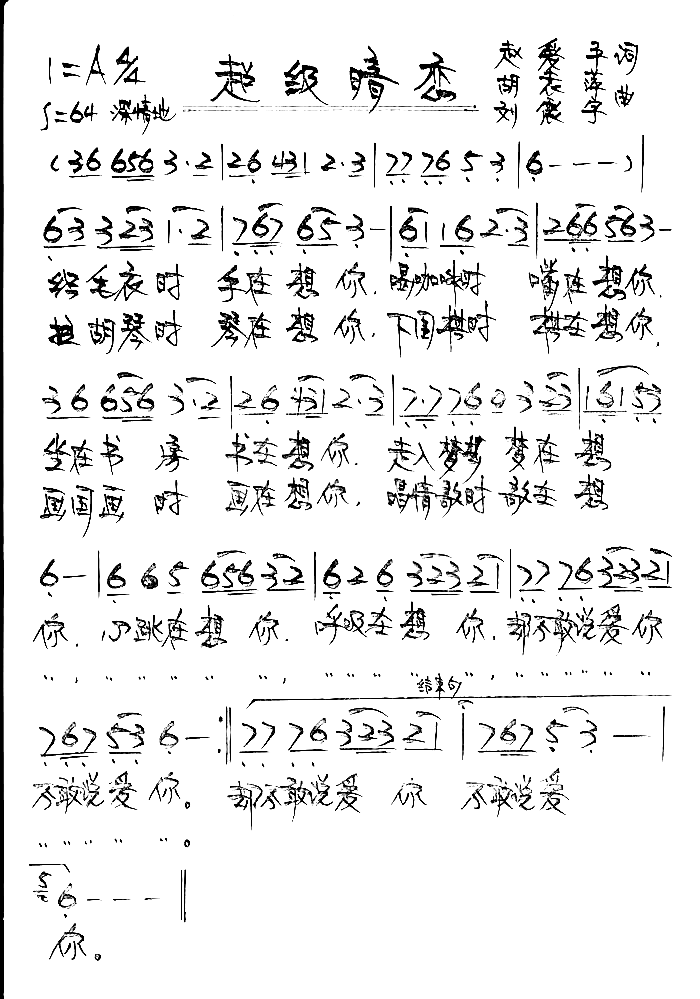 1=A 4/4 超级暗恋 赵爱平 词
胡志萍
♩=64 深情地 刘 宇 曲
(36 656 3·2|26 431 2·3|77 76 5 3|6---)|
63 323 1·2|767 65 3-|61 16 2·3|266 563-
织毛衣时 手在想你, 喝咖啡时 嘴在想你,
拉胡琴时 琴在想你, 下围棋时 棋在想你,
36 656 3·2|26 431 2·3|7·7 76 0 3 23|1 61 53
坐在书房 书在想你, 走入梦乡 梦在想
画国画时 画在想你, 唱情歌时 歌在想
6-|6 6 5 656 32|6 2 6 323 21|77 76 323 21
你, 心跳在想你, 呼吸在想你, 却不敢说爱你
〃, 〃〃〃〃〃, 〃〃〃〃〃, 〃〃〃〃〃〃
结束句
767 53 6-:‖77 76 323 21|767 5 3-|
不敢说爱你。 却不敢说爱你 不敢说爱
〃〃〃〃〃。
6---‖
你。